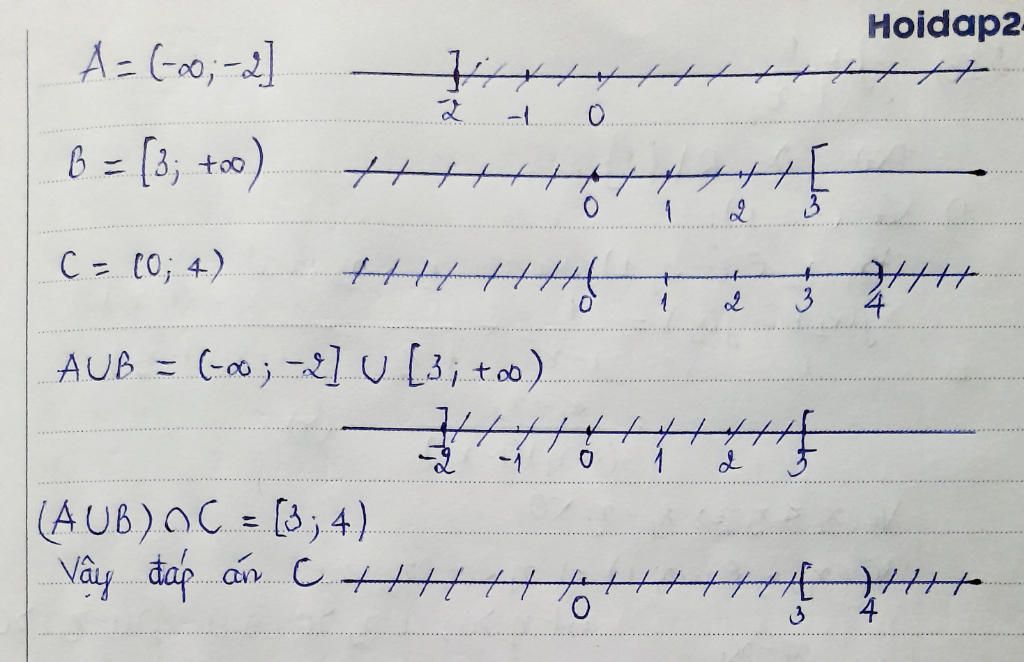 Hoidap2
A = (-∞; -2]
-2 -1 0
B = [3; +∞)
0 1 2 3
C = (0; 4)
0 1 2 3 4
A∪B = (-∞; -2] ∪ [3; +∞)
-2 -1 0 1 2 3
(A∪B)∩C = [3; 4)
Vậy đáp án C
0 3 4